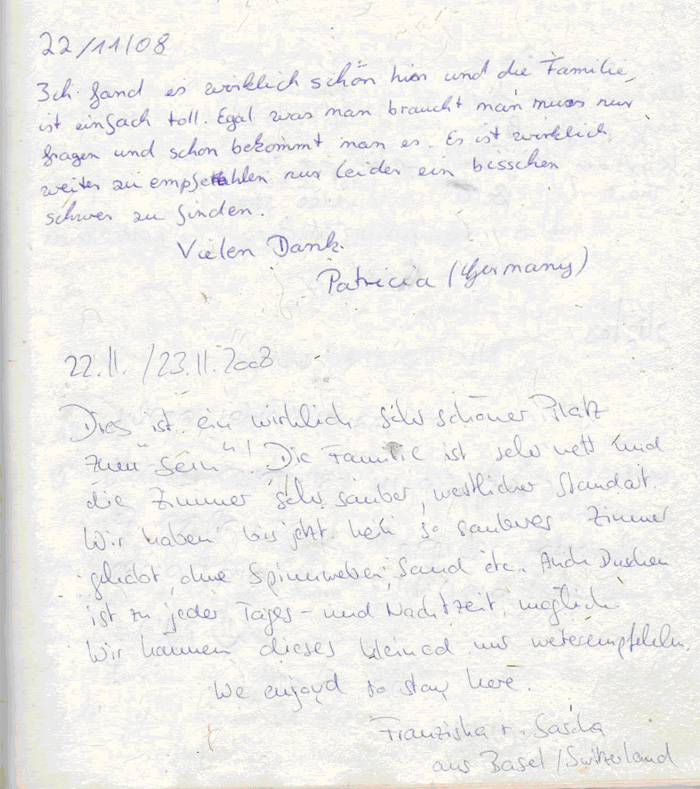 22/11/08
Ich fand es wirklich schön hier und die Familie
ist einfach toll. Egal was man braucht man muss nur
fragen und schon bekommt man es. Es ist wirklich
weiter zu empfehlen nur leider ein bisschen
schwer zu finden.
Vielen Dank.
Patricia (Germany)
22.11. / 23.11.2008
Dies ist ein wirklich sehr schöner Platz
zum "Sein"! Die Familie ist sehr nett und
die Zimmer sehr sauber, westlicher Standart.
Wir haben bis jetzt kein so sauberes Zimmer
gehabt, ohne Spinnweben, Sand etc. Auch Duschen
ist zu jeder Tages- und Nachtzeit möglich.
Wir können dieses Kleinod nur weiterempfehlen.
We enjoyd to stay here.
Franziska + Sascha
aus Basel / Switzerland